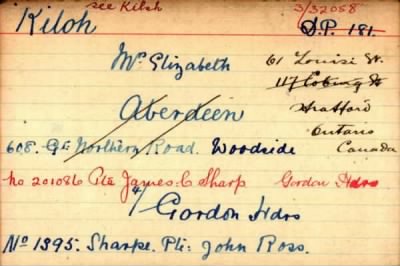 see Kilsh
3/32058
Kiloh
D.P. 181.
Mrs Elizabeth
61 Louise St.
117 Cobing St
Aberdeen
Stratford
Ontario
608. Gt Northern Road. Woodside
Canada
No 201086 Pte James. C Sharp Gordon Hdrs
4/ Gordon Hdrs
No 1395. Sharpe. Pte. John Ross.